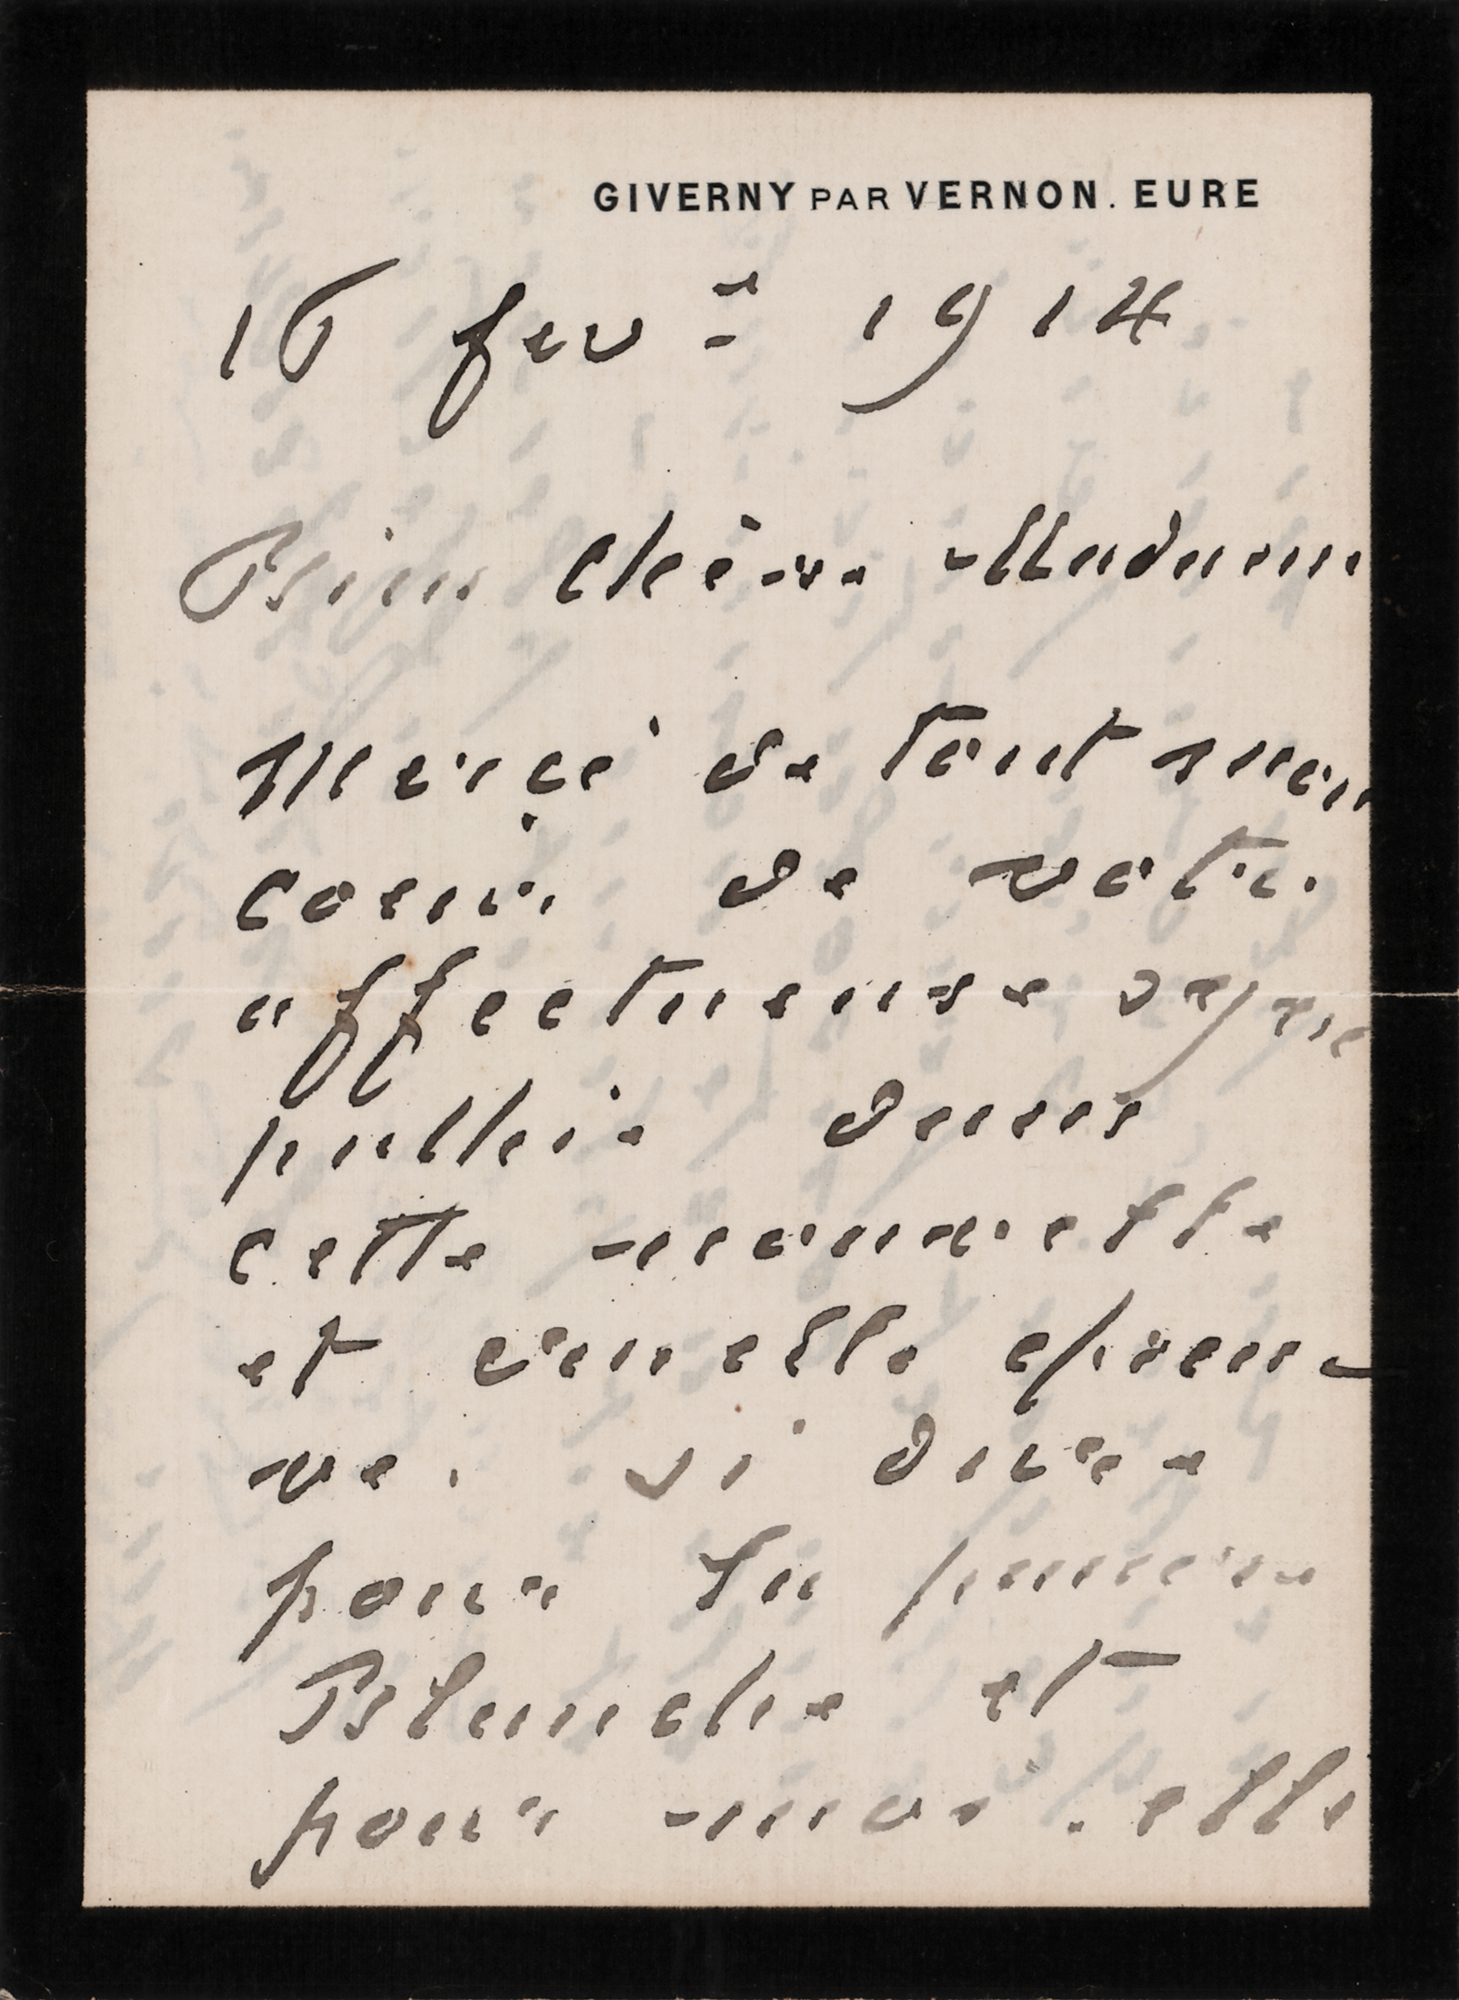 GIVERNY PAR VERNON. EURE
16 fevr 1914
Bien chère Madame
Merçi de tout mon
coeur de votre
affectueuse sym
pathie dans
cette nouvelle
et cruelle épreu-
ve. si dure
pour la pauvre
Blanche et
pour moi. elle